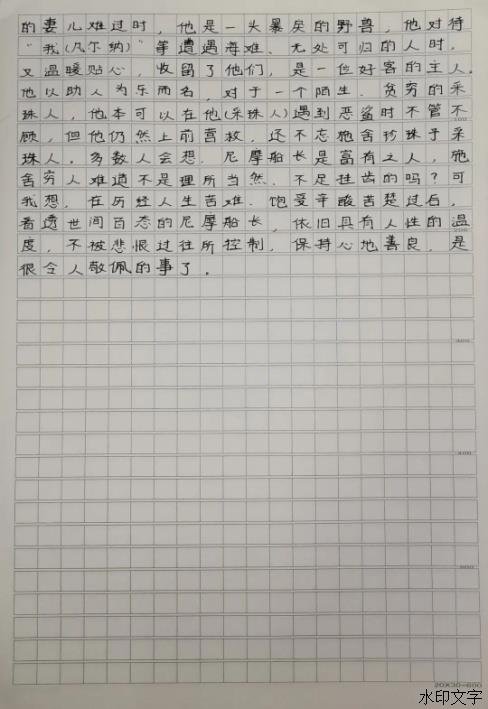 的妻儿难过时，他是一头暴戾的野兽，他对待
“我(凡尔纳)”等遭遇海难、无处可归的人时，
又温暖贴心，收留了他们，是一位好客的主人。
他以助人为乐而名，对于一个陌生、贫穷的采
珠人，他本可以在他(采珠人)遇到恶鲨时不管不
顾，但他仍然上前营救，还不忘施舍珍珠于采
珠人。多数人会想，尼摩船长是富有之人，施
舍穷人难道不是理所当然、不足挂齿的吗？可
我想，在历经人生苦难、饱受辛酸苦楚过后，
看透世间百态的尼摩船长，依旧具有人性的温
度，不被悲恨过往所控制，保持心地善良，是
很令人敬佩的事了。
20X30=600
水印文字